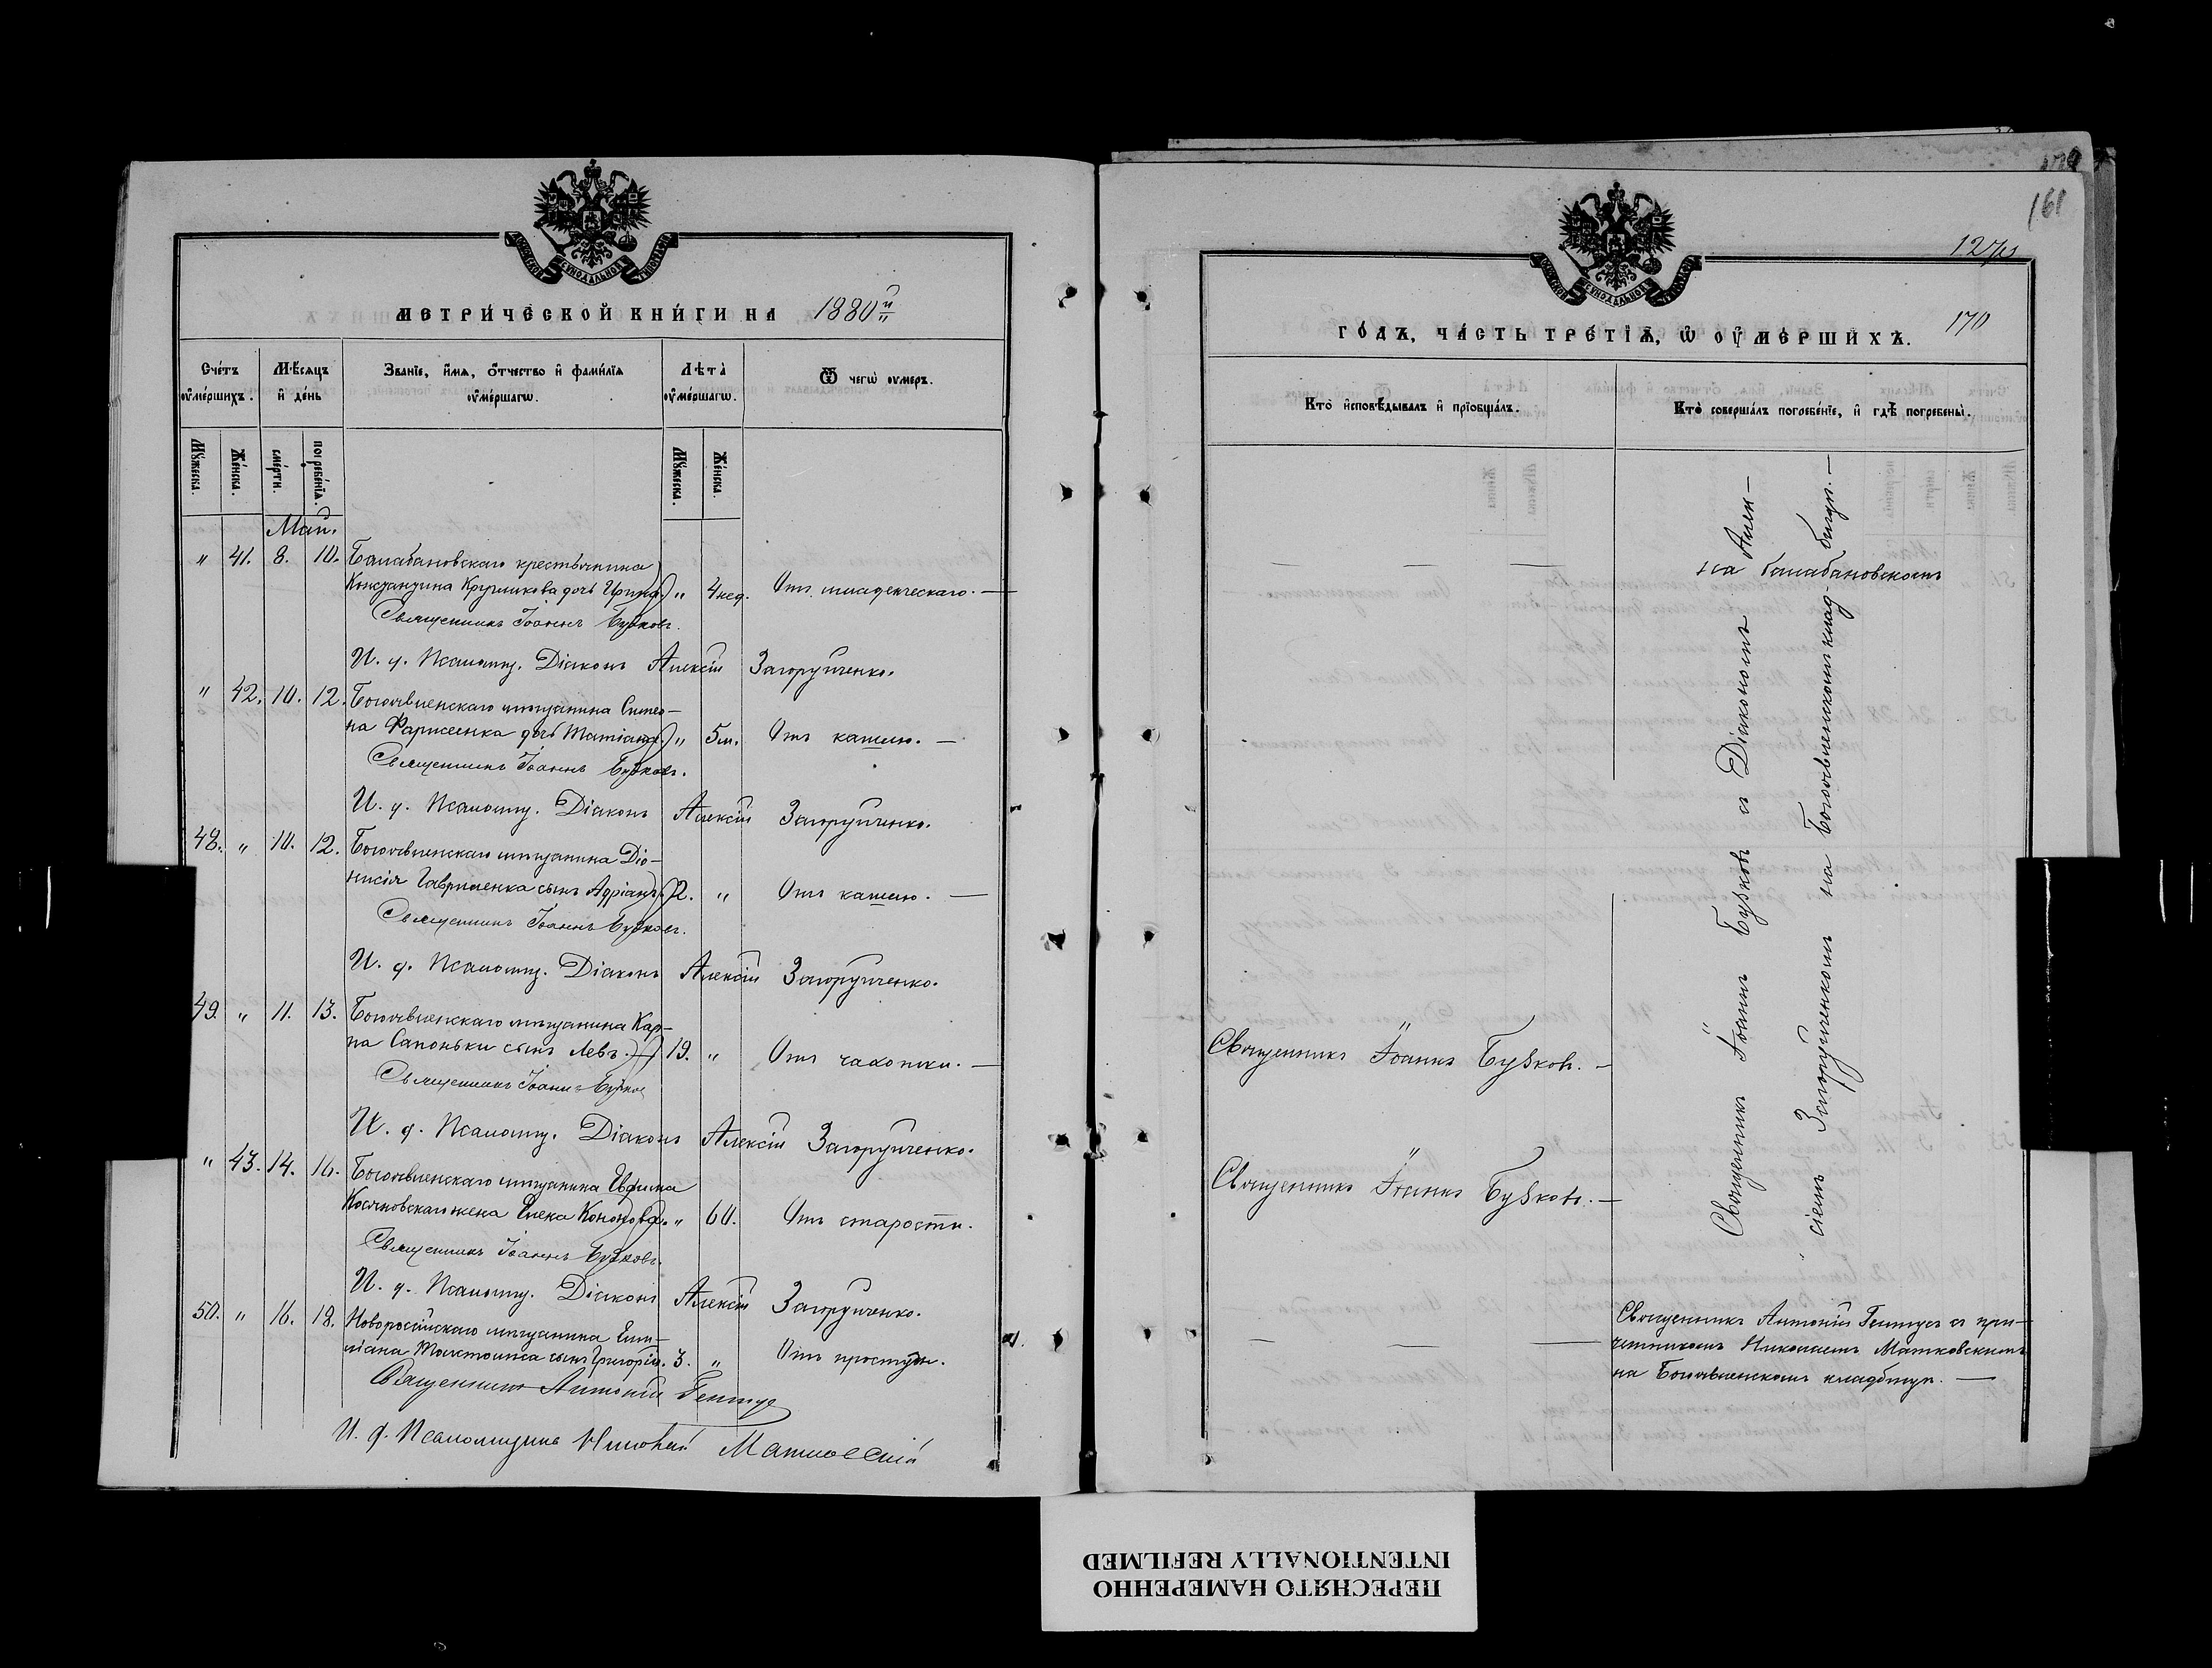 МЕТРИ́ЧЕСКОЙ КНИ́ГИ НА 1880й
Сче́тъ ᲂу҆ме́ршихъ.
Мѣ́сѧцъ и҆ де́нь
Зва́нїе, и҆́мѧ, ѻ҆́тчество и҆ фами́лїѧ ᲂу҆ме́ршагѡ.
Лѣ́та ᲂу҆ме́ршагѡ.
Ѿ чегѡ̀ ᲂу҆́меръ.
Мꙋ́жеска.
Же́нска.
сме́рти.
погребе́нїѧ.
Мꙋ́жеска.
Же́нска.
Май.
" 41. 8. 10. Балабановскаго крестьянина
Константина Кругликова дочь Ирина. " 4 нед. Отъ младенческаго. —
Священникъ Іоаннъ Бузковъ.
И. д. Псаломщ. Діаконъ Алексій Загоруйченко.
" 42. 10. 12. Богоявленскаго мѣщанина Симео-
на Фарисеенка дочь Татіана. " 5 м. Отъ кашлю. —
Священникъ Іоаннъ Бузковъ.
И. д. Псаломщ. Діаконъ Алексій Загоруйченко.
48. " 10. 12. Богоявленскаго мѣщанина Діо-
нисія Гавриленка сынъ Адріанъ. 2. " Отъ кашлю. —
Священникъ Іоаннъ Бузковъ.
И. д. Псаломщ. Діаконъ Алексій Загоруйченко.
49. " 11. 13. Богоявленскаго мѣщанина Кар-
па Сапоньки сынъ Левъ. 19. " Отъ чахотки. —
Священникъ Іоаннъ Бузков
И. д. Псаломщ. Діаконъ Алексій Загоруйченко.
" 43. 14. 16. Богоявленскаго мѣщанина Ефима
Косяновскаго жена Елена Кононова. " 60. Отъ старости.
Священникъ Іоаннъ Бузковъ.
И. д. Псаломщ. Діаконъ Алексій Загоруйченко.
50. " 16. 18. Новоросійскаго мѣщанина
сынъ Григорій. 3. " Отъ простуды.
Священникъ Антоній
И. д. Псаломщика Николай Матковскій
161
127
170
ГО́ДЪ, ЧА́СТЬ ТРЕ́ТЇѦ, Ѡ ОУ҆МЕ́РШИХЪ.
Кто̀ и҆сповѣ́дывалъ и҆ прїѡбща́лъ.
Кто̀ соверша́лъ погребе́нїе, и҆ гдѣ̀ погребены̀.
— — —
Священникъ Іоаннъ Бузковъ. —
Священникъ Іоаннъ Бузковъ. —
— — —
Священникъ Іоаннъ Бузковъ съ Діакономъ Алек-
сіемъ Загоруйченкомъ на Богоявленскомъ кладбищѣ. —
на балабановскомъ
Священникъ Антоній съ при-
четникомъ Николаемъ Матковскимъ
на Богоявленскомъ кладбищѣ. —
ПЕРЕСНЯТО НАМЕРЕННО
INTENTIONALLY REFILMED